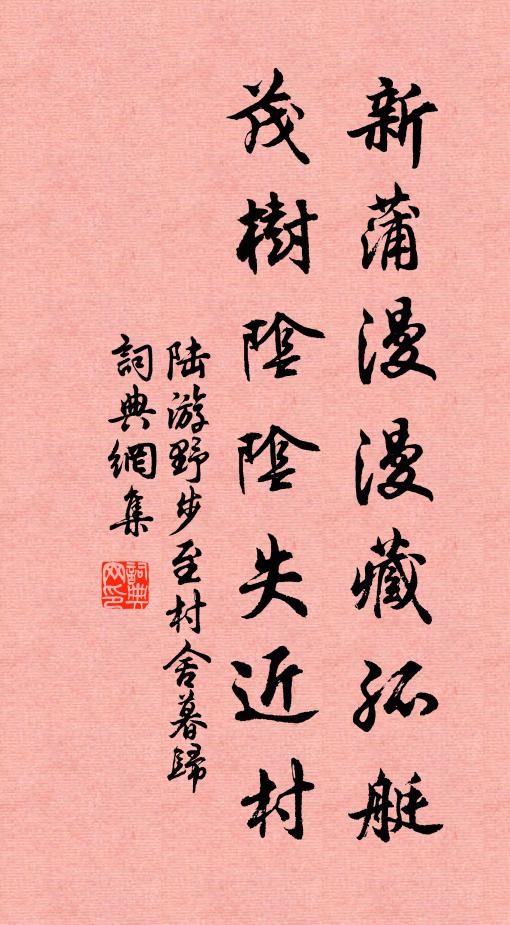 新蒲漫漫藏孤艇
茂樹陰陰失近村
陆游野步至村舍暮歸
詞典網集
詞典网印